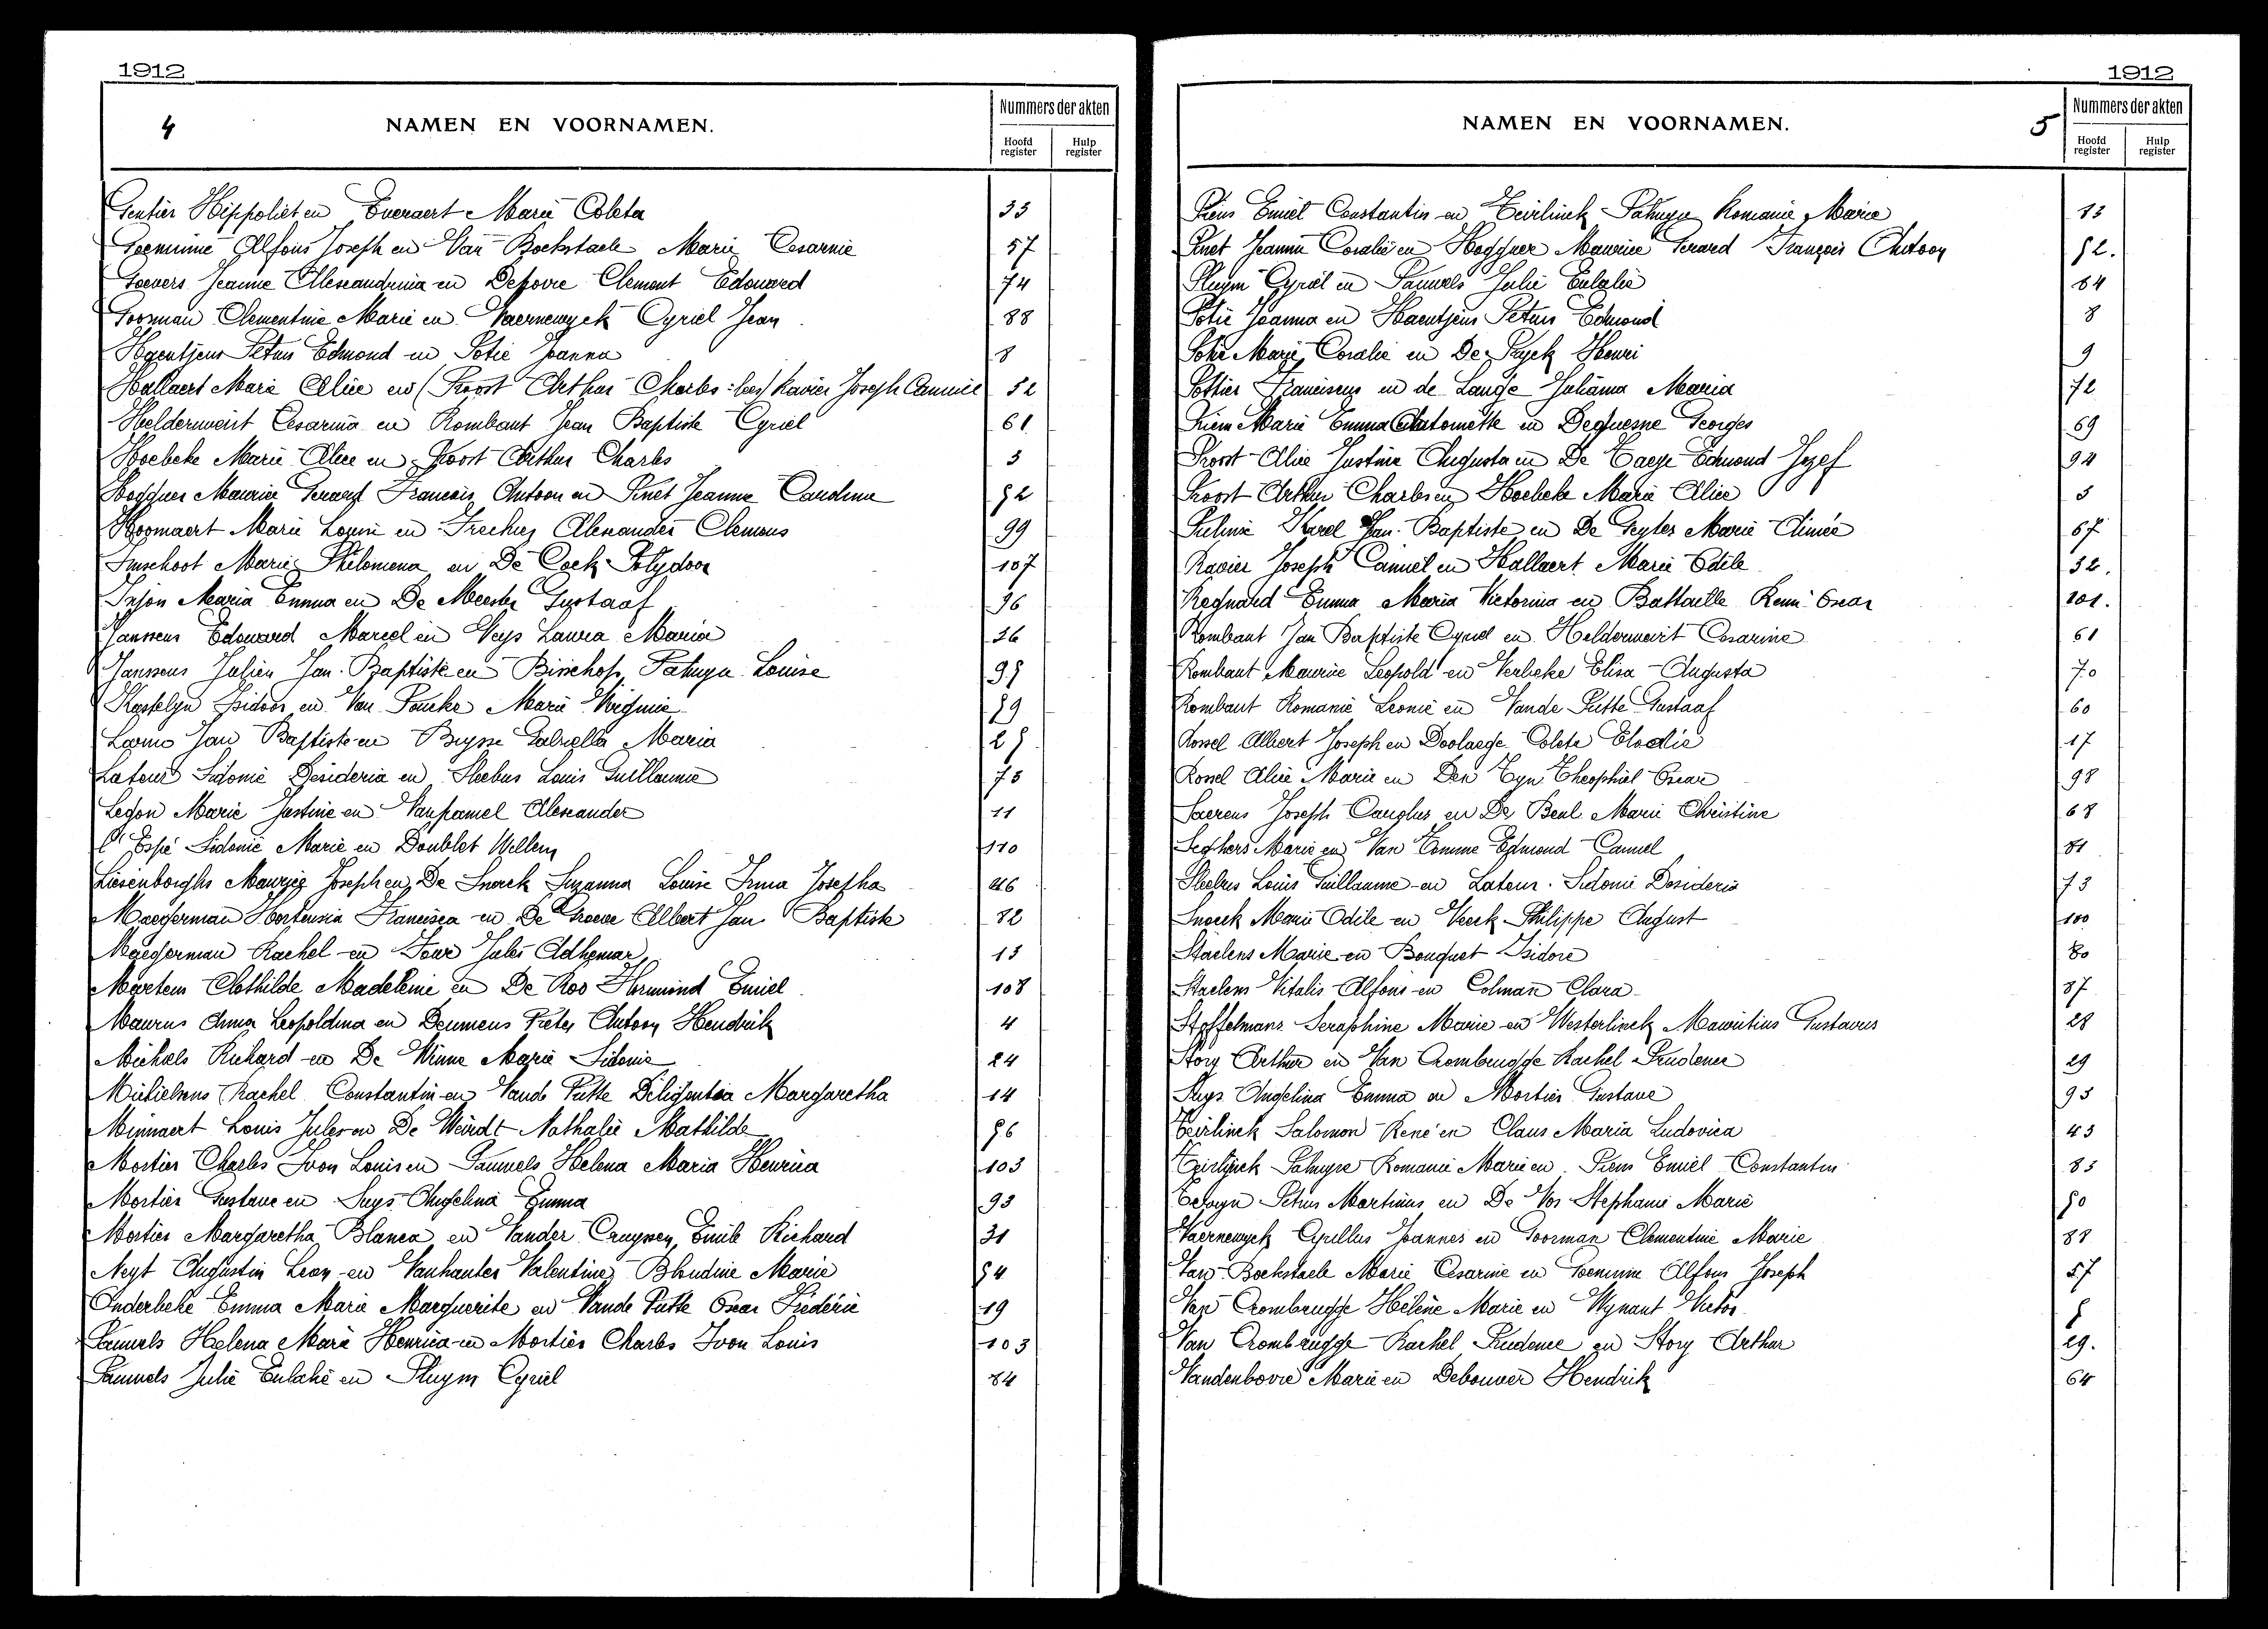 1912
4
NAMEN EN VOORNAMEN.
Nummers der akten
Hoofd register
Hulp register
Gentier Hippoliet en Everaert Marie Coleta 33
Goeminne Alfons Joseph en Van Bockstaele Marie Cesarine 57
Goevers Jeanne Alexandrina en Depovre Clement Edouard 74
Goorman Clementine Marie en Vaernewyck Cyriel Jean 88
Haentjens Petrus Edmond en Potie Joanna 8
Hallaert Marie Alice en (Proost Arthur Charles: lees) Ravier Joseph Camiel 32
Helderweirt Cesarina en Rombaut Jean Baptiste Cyriel 61
Hoebeke Marie Alice en Proost Arthur Charles 3
Hogguer Maurice Gerard Francois Antoon en Pinet Jeanne Caroline 52
Hoornaert Marie Louise en Alexander Clemens 99
Imschoot Marie Philomena en De Cock Polydoor 107
Maria Emma en De Meester Gustaaf 36
Janssens Edouard Marcel en Veys Laura Maria 26
Janssens Julien Jan-Baptiste en Bisschop Palmyre Louise 95
Kastelyn Isidoor en Van Poucke Marie Virginie 59
Jan Baptiste en Buysse Gabriella Maria 25
Lateur Sidonie Desideria en Sleebus Louis Guillaume 73
Legon Marie Justine en Vanpamel Alexander 11
L'Espé Sidonie Marie en Doublet Willem 110
Liesenborghs Maurice Joseph en De Snoeck Suzanna Louise Irma Josepha 46
Maegerman Hortensia Francisca en De Groeve Albert Jan Baptiste 82
Maegerman Rachel en Jules Adhemar 13
Martens Clothilde Madeleine en De Roo Hermond Emiel 108
Maurus Anna Leopoldina en Deumens Pieter Antoon Hendrik 4
Michiels Richard en De Winne Marie Sidonie 24
Michielsens Rachel Constantin en Vande Putte Deligentia Margaretha 14
Minnaert Louis Jules en De Weirdt Nathalie Mathilde 56
Mortier Charles Ivon Louis en Pauwels Helena Maria Henrica 103
Mortier Gustave en Suys Angelina Emma 93
Mortier Margaretha Blanca en Vander Cruyssen Emile Richard 31
Neyt Augustin Leon en Vanhauter Valentine Blondine Marie 54
Onderbeke Emma Marie Marguerite en Vande Putte Oscar Frédéric 19
Pauwels Helena Marie Henrica en Mortier Charles Ivon Louis 103
Pauwels Julie Eulalie en Pluym Cyriel 84
1912
NAMEN EN VOORNAMEN.
5
Nummers der akten
Hoofd register
Hulp register
Piens Emiel Constantin en Teirlinck Palmyre Romanie Marie 83
Pinet Jeanne Coralie en Hogguer Maurice Gerard François Antoon 52.
Pluym Cyriel en Pauwels Julie Eulalie 84
Potie Joanna en Haentjens Petrus Edmond 8
Potie Marie Coralie en De Ruyck Henri 9
Pottier Franciscus en de Lange Juliana Maria 72
Priem Marie Emma Antoinette en Dequesne Georges 69
Proost Alice Justine Augusta en De Taeye Edmond Jozef 94
Proost Arthur Charles en Hoebeke Marie Alice 3
Pulinx Karel Jan-Baptiste en De Geyter Marie Aimée 67
Ravier Joseph Camiel en Hallaert Marie Odile 32.
Regnard Emma Maria Victorina en Battaille Remi Oscar 101.
Rombaut Jan Baptiste Cyriel en Helderweirt Cesarine 61
Rombaut Maurice Leopold en Verbeke Elisa Augusta 70
Rombaut Romanie Leonie en Vande Putte Gustaaf 60
Rossel Albert Joseph en Doolaege Colete Elodie 17
Rossel Alice Marie en Den Tyn Theophiel Oscar 98
Saerens Joseph en De Beul Marie Christine 68
Seghers Marie en Van Tomme Edmond Camiel 81
Sleebus Louis Guillaume en Lateur Sidonie Desideria 73
Snoeck Marie Odile en Veeck Philippe August 100
Staelens Marie en Bouquet Isidore 80
Staelens Vitalis Alfons en Colman Clara 87
Stoffelmans Seraphine Marie en Westerlinck Mauritius Gustavus 28
Story Arthur en Van Crombrugge Rachel Prudence 29
Suys Angelina Emma en Mortier Gustave 93
Teirlinck Salomon René en Claus Maria Ludovica 43
Teirlynck Palmyre Romanie Marie en Piens Emiel Constantin 83
Petrus Martinus en De Vos Stephanie Marie 50
Vaernewyck Cyrillus Joannes en Goorman Clementine Marie 88
Van Bockstaele Marie Cesarine en Goeminne Alfons Joseph 57
Van Crombrugge Hélène Marie en Wynant Victor 5
Van Crombrugge Rachel Prudence en Story Arthur 29.
Vandenbovre Marie en Debouver Hendrik 64